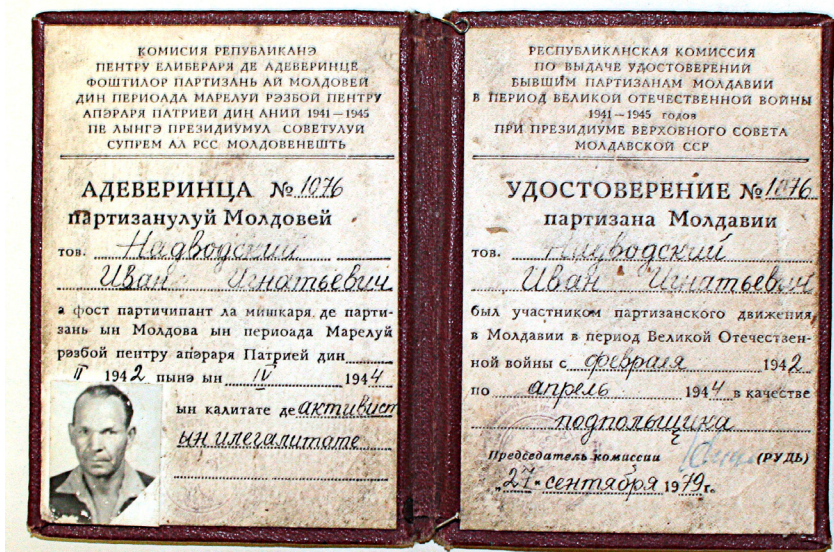 КОМИСИЯ РЕПУБЛИКАНЭ
ПЕНТРУ ЕЛИБЕРАРЯ ДЕ АДЕВЕРИНЦЕ
ФОШТИЛОР ПАРТИЗАНЬ АЙ МОЛДОВЕЙ
ДИН ПЕРИОАДА МАРЕЛУЙ РЭЗБОЙ ПЕНТРУ
АПЭРАРЯ ПАТРИЕЙ ДИН АНИЙ 1941—1945
ПЕ ЛЫНГЭ ПРЕЗИДИУМУЛ СОВЕТУЛУЙ
СУПРЕМ АЛ РСС МОЛДОВЕНЕШТЬ
АДЕВЕРИНЦА № 1076
партизанулуй Молдовей
тов. Надводский
Иван Игнатьевич
а фост партичипант ла мишкаря де парти-
зань ын Молдова ын периоада Марелуй
рэзбой пентру апэраря Патрией дин
II 1942 пынэ ын IV 1944
ын калитате де активист
ын илегалитате
РЕСПУБЛИКАНСКАЯ КОМИССИЯ
ПО ВЫДАЧЕ УДОСТОВЕРЕНИЙ
БЫВШИМ ПАРТИЗАНАМ МОЛДАВИИ
В ПЕРИОД ВЕЛИКОЙ ОТЕЧЕСТВЕННОЙ ВОЙНЫ
1941—1945 годов
ПРИ ПРЕЗИДИУМЕ ВЕРХОВНОГО СОВЕТА
МОЛДАВСКОЙ ССР
УДОСТОВЕРЕНИЕ № 1076
партизана Молдавии
тов. Надводский
Иван Игнатьевич
был участником партизанского движения
в Молдавии в период Великой Отечествен-
ной войны с февраля 1942
по апрель 1944 в качестве
подпольщика
Председатель комиссии (РУДЬ)
„27" сентября 1979 г.